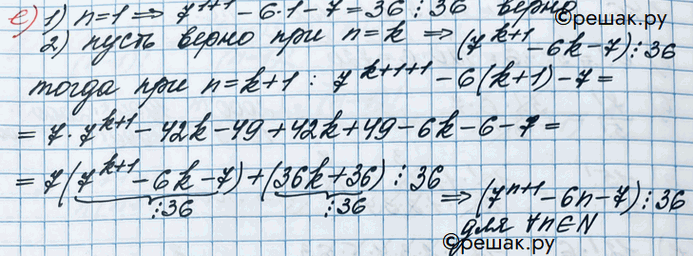 е) 1) n=1 ⇒ 7^{1+1} - 6·1 - 7 = 36 ⋮ 36 верно
©reшак.ру
2) пусть верно при n=k ⇒ (7^{k+1} - 6k - 7) ⋮ 36
тогда при n=k+1 : 7^{k+1+1} - 6(k+1) - 7 =
= 7·7^{k+1} - 42k - 49 + 42k + 49 - 6k - 6 - 7 =
= 7(7^{k+1} - 6k - 7) + (36k + 36) ⋮ 36
⋮36 ⋮36 ⇒ (7^{n+1} - 6n - 7) ⋮ 36
для ∀n∈N
©решак.ру